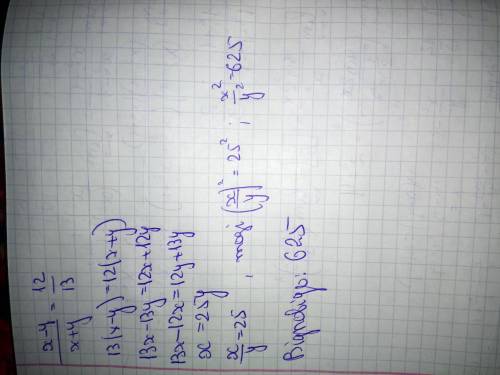 (x-y)/(x+y) = 12/13
13(x-y)=12(x+y)
13x-13y=12x+12y
13x-12x=12y+13y
x=25y
x/y=25 , тоді (x/y)² = 25² ; x²/y²=625
Відповідь: 625